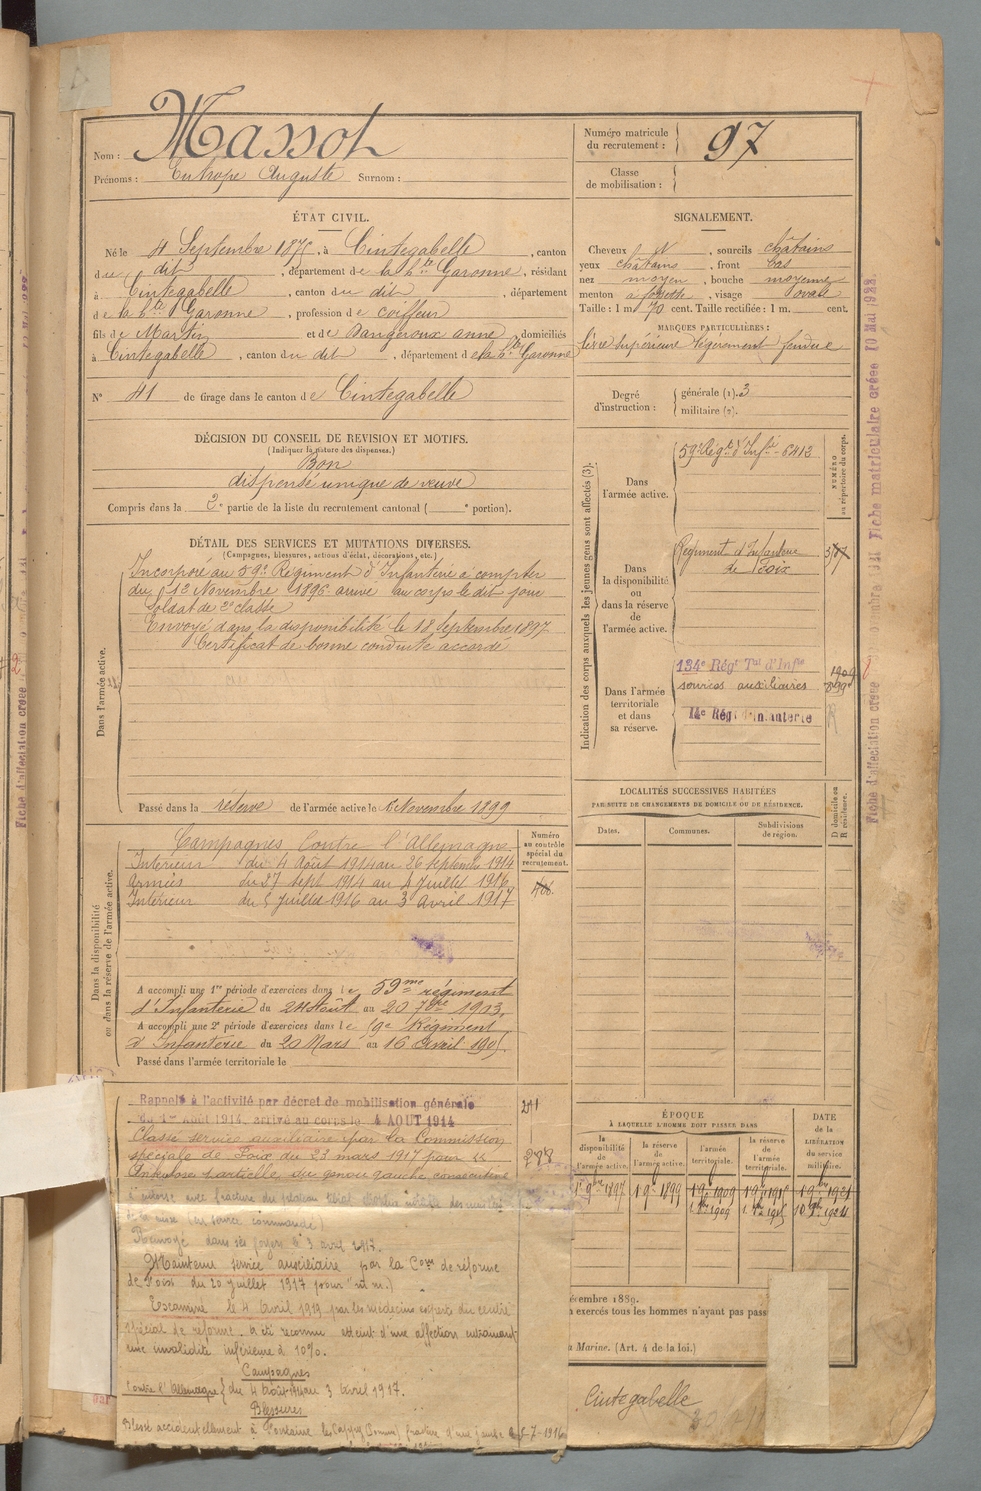 Nom : Massot
Prénoms : Eutrope Auguste Surnom :
Numéro matricule du recrutement : 97
Classe de mobilisation :
ÉTAT CIVIL.
Né le 4 Septembre 1875, à Cintegabelle, canton
du dit, département de la hte Garonne, résidant
à Cintegabelle, canton du dit, département
de la hte Garonne, profession de coiffeur
fils de Martin et de Dangeroux anne, domiciliés
à Cintegabelle, canton du dit, département de la hte Garonne
N° 41 de tirage dans le canton de Cintegabelle
SIGNALEMENT.
Cheveux N, sourcils châtains
yeux châtains, front bas
nez moyen, bouche moyenne
menton à fossette, visage ovale
Taille : 1 m 70 cent. Taille rectifiée : 1 m. cent.
MARQUES PARTICULIÈRES :
lèvre supérieure légèrement fendue
Degré d'instruction : générale (1). 3
militaire (2).
DÉCISION DU CONSEIL DE REVISION ET MOTIFS.
(Indiquer la nature des dispenses.)
Bon
dispensé unique de veuve
Compris dans la 2e partie de la liste du recrutement cantonal ( e portion).
DÉTAIL DES SERVICES ET MUTATIONS DIVERSES.
(Campagnes, blessures, actions d'éclat, décorations, etc.)
Dans l'armée active.
Incorporé au 59e Régiment d'Infanterie à compter
du 13 Novembre 1896 arrivé au corps le dit jour
soldat de 2e classe
Envoyé dans la disponibilité le 18 Septembre 1897
Certificat de bonne conduite accordé
Passé dans la réserve de l'armée active le 1 Novembre 1899
Indication des corps auxquels les jeunes gens sont affectés (3).
NUMÉRO au répertoire du corps.
Dans l'armée active.
59e Régt d'Infie 6413
Dans la disponibilité ou dans la réserve de l'armée active.
Régiment d'Infanterie
de Foix
Dans l'armée territoriale et dans sa réserve.
134e Régt Tal d'Infie
services auxiliaires
14e Régt d'Infanterie
1909
LOCALITÉS SUCCESSIVES HABITÉES
PAR SUITE DE CHANGEMENTS DE DOMICILE OU DE RÉSIDENCE.
Dates. Communes. Subdivisions de région. D domicile ou R résidence.
Dans la disponibilité ou dans la réserve de l'armée active.
Numéro au contrôle spécial du recrutement.
Campagnes Contre l'Allemagne
Intérieur du 4 Août 1914 au 26 septembre 1914
Armées du 27 Sept 1914 au 4 Juillet 1916
Intérieur du 5 Juillet 1916 au 3 Avril 1917
A accompli une 1re période d'exercices dans le 59me régiment
d'Infanterie du 24 Août au 20 7bre 1903.
A accompli une 2e période d'exercices dans le 19e Régiment
d'Infanterie du 20 Mars au 16 Avril 1905.
Passé dans l'armée territoriale le
Rappelé à l'activité par décret de mobilisation générale
du 1er Août 1914, arrivé au corps le 4 AOUT 1914
Classé service auxiliaire par la Commission
spéciale de Foix du 23 mars 1917 pour
Ankylose partielle du genou gauche consécutive
Renvoyé dans ses foyers le 3 avril 1917.
Maintenu service auxiliaire par la Con de réforme
de Foix du 20 juillet 1917 pour "id m."
Examiné le 4 Avril 1919 par les médecins experts du centre
spécial de réforme. a été reconnu atteint d'une affection entrainant
une invalidité inférieure à 10%.
Campagnes
Contre l'Allemagne du 4 Août 1914 au 3 avril 1917.
Blessures
Blessé accidentellement à Fontaine les Cappy (Somme) fracture d'une jambe le 5-7-1916
ÉPOQUE
À LAQUELLE L'HOMME DOIT PASSER DANS
la disponibilité de l'armée active.
la réserve de l'armée active.
l'armée territoriale.
la réserve de l'armée territoriale.
DATE de la LIBÉRATION du service militaire.
1er 9bre 1897 1er 9bre 1899 1er 9bre 1909
écembre 1889.
exercés tous les hommes n'ayant pas pass
Marine. (Art. 4 de la loi.)
Cintegabelle
Fiche matriculaire créée 10 Mai 1922
Fiche d'affectation créée